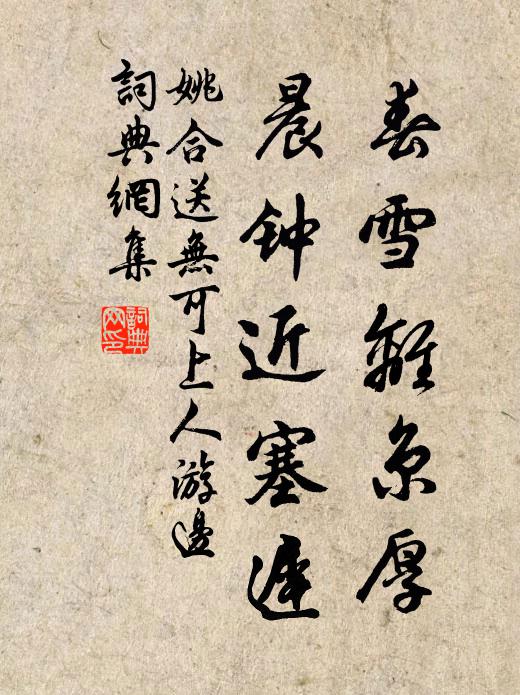 春雪離京厚
晨钟近塞遲
姚合送無可上人游邊
詞典網集
詞典
网印